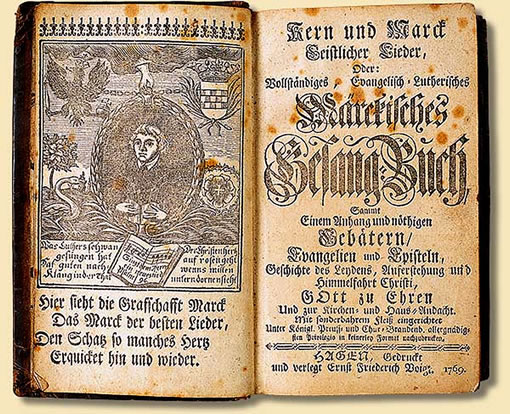 Was Luthers schwan
gesungen hat
Hat guten nach
Klang in der That
Der Christen hertz
auf rosen geht
wenns mitten
unterm dornen steht
Hier sieht die Graffschafft Marck
Das Marck der besten Lieder,
Den Schatz so manches Hertz
Erquicket hin und wieder.
Kern und Marck
Geistlicher Lieder,
Oder:
Vollständiges, Evangelisch-Lutherisches
Märckisches
Gesang-Buch,
Sammt
Einem Anhang und nöthigen
Gebätern/
Evangelien und Episteln,
Geschichte des Leydens, Auferstehung und
Himmelfahrt Christi,
GOtt zu Ehren
Und zur Kirchen- und Haus-Andacht.
Mit sonderbahrem Fleiß eingerichtet
Unter Königl. Preuß- und Chur-Brandenb. allergnädig-
sten Privilegio in keinerley Format nachzudrucken.
HAGEN, Gedruckt
und verlegt Ernst Friederich Voigt, 1769.